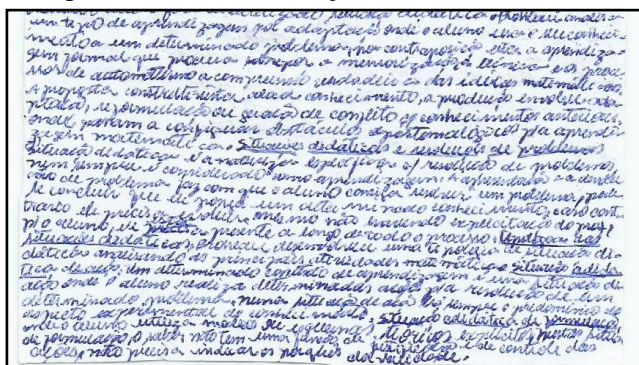 um tipo de aprendizagem por adaptação onde o aluno usa o seu conheci-
mento a um determinado problema, por contraposição cita a aprendiza-
gem formal que procura sobrepor a memorização técnica e os proces-
sos de automatismo a compreensão verdadeira das ideias matemáticas.
A proposta construtivista ao conhecimento, a produção envolve ada-
ptação, reformulação ou geração de conflito c/ conhecimentos anteriores,
onde passam a configurar obstáculos epistemológicos p/a aprendi-
zagem matemática. Situações didáticas e resolução de problemas
Situação didática e a natureza específica c/ resolução de problemas
nem sempre é considerado como aprendizagem. A apresentação e a
de problema faz com que o aluno consiga resolver um problema, pode
se concluir que ele possui um determinado conhecimento, caso con-
trário ele precisa mesmo não havendo explicitação do prof.
p/o aluno, presente ao longo de todo o processo.
situações didáticas, Brousseau desenvolveu uma tipologia de situação di-
dáticas analisando as principais atividades matemáticas. Situação adidá-
tica de ação, em determinado contexto de aprendizagem é uma situação de
ação onde o aluno realiza determinadas ações p/a resolução de um
determinado problema, numa situação de ação há sempre o predomínio do
aspecto experimental do conhecimento. Situação adidática de formulação
onde o aluno utiliza modelos ou esquemas teóricos explícitos, nestas situa-
de formulação, o saber não tem uma função de justificação e de controle das
ações, não precisa indicar os porquês da validade.